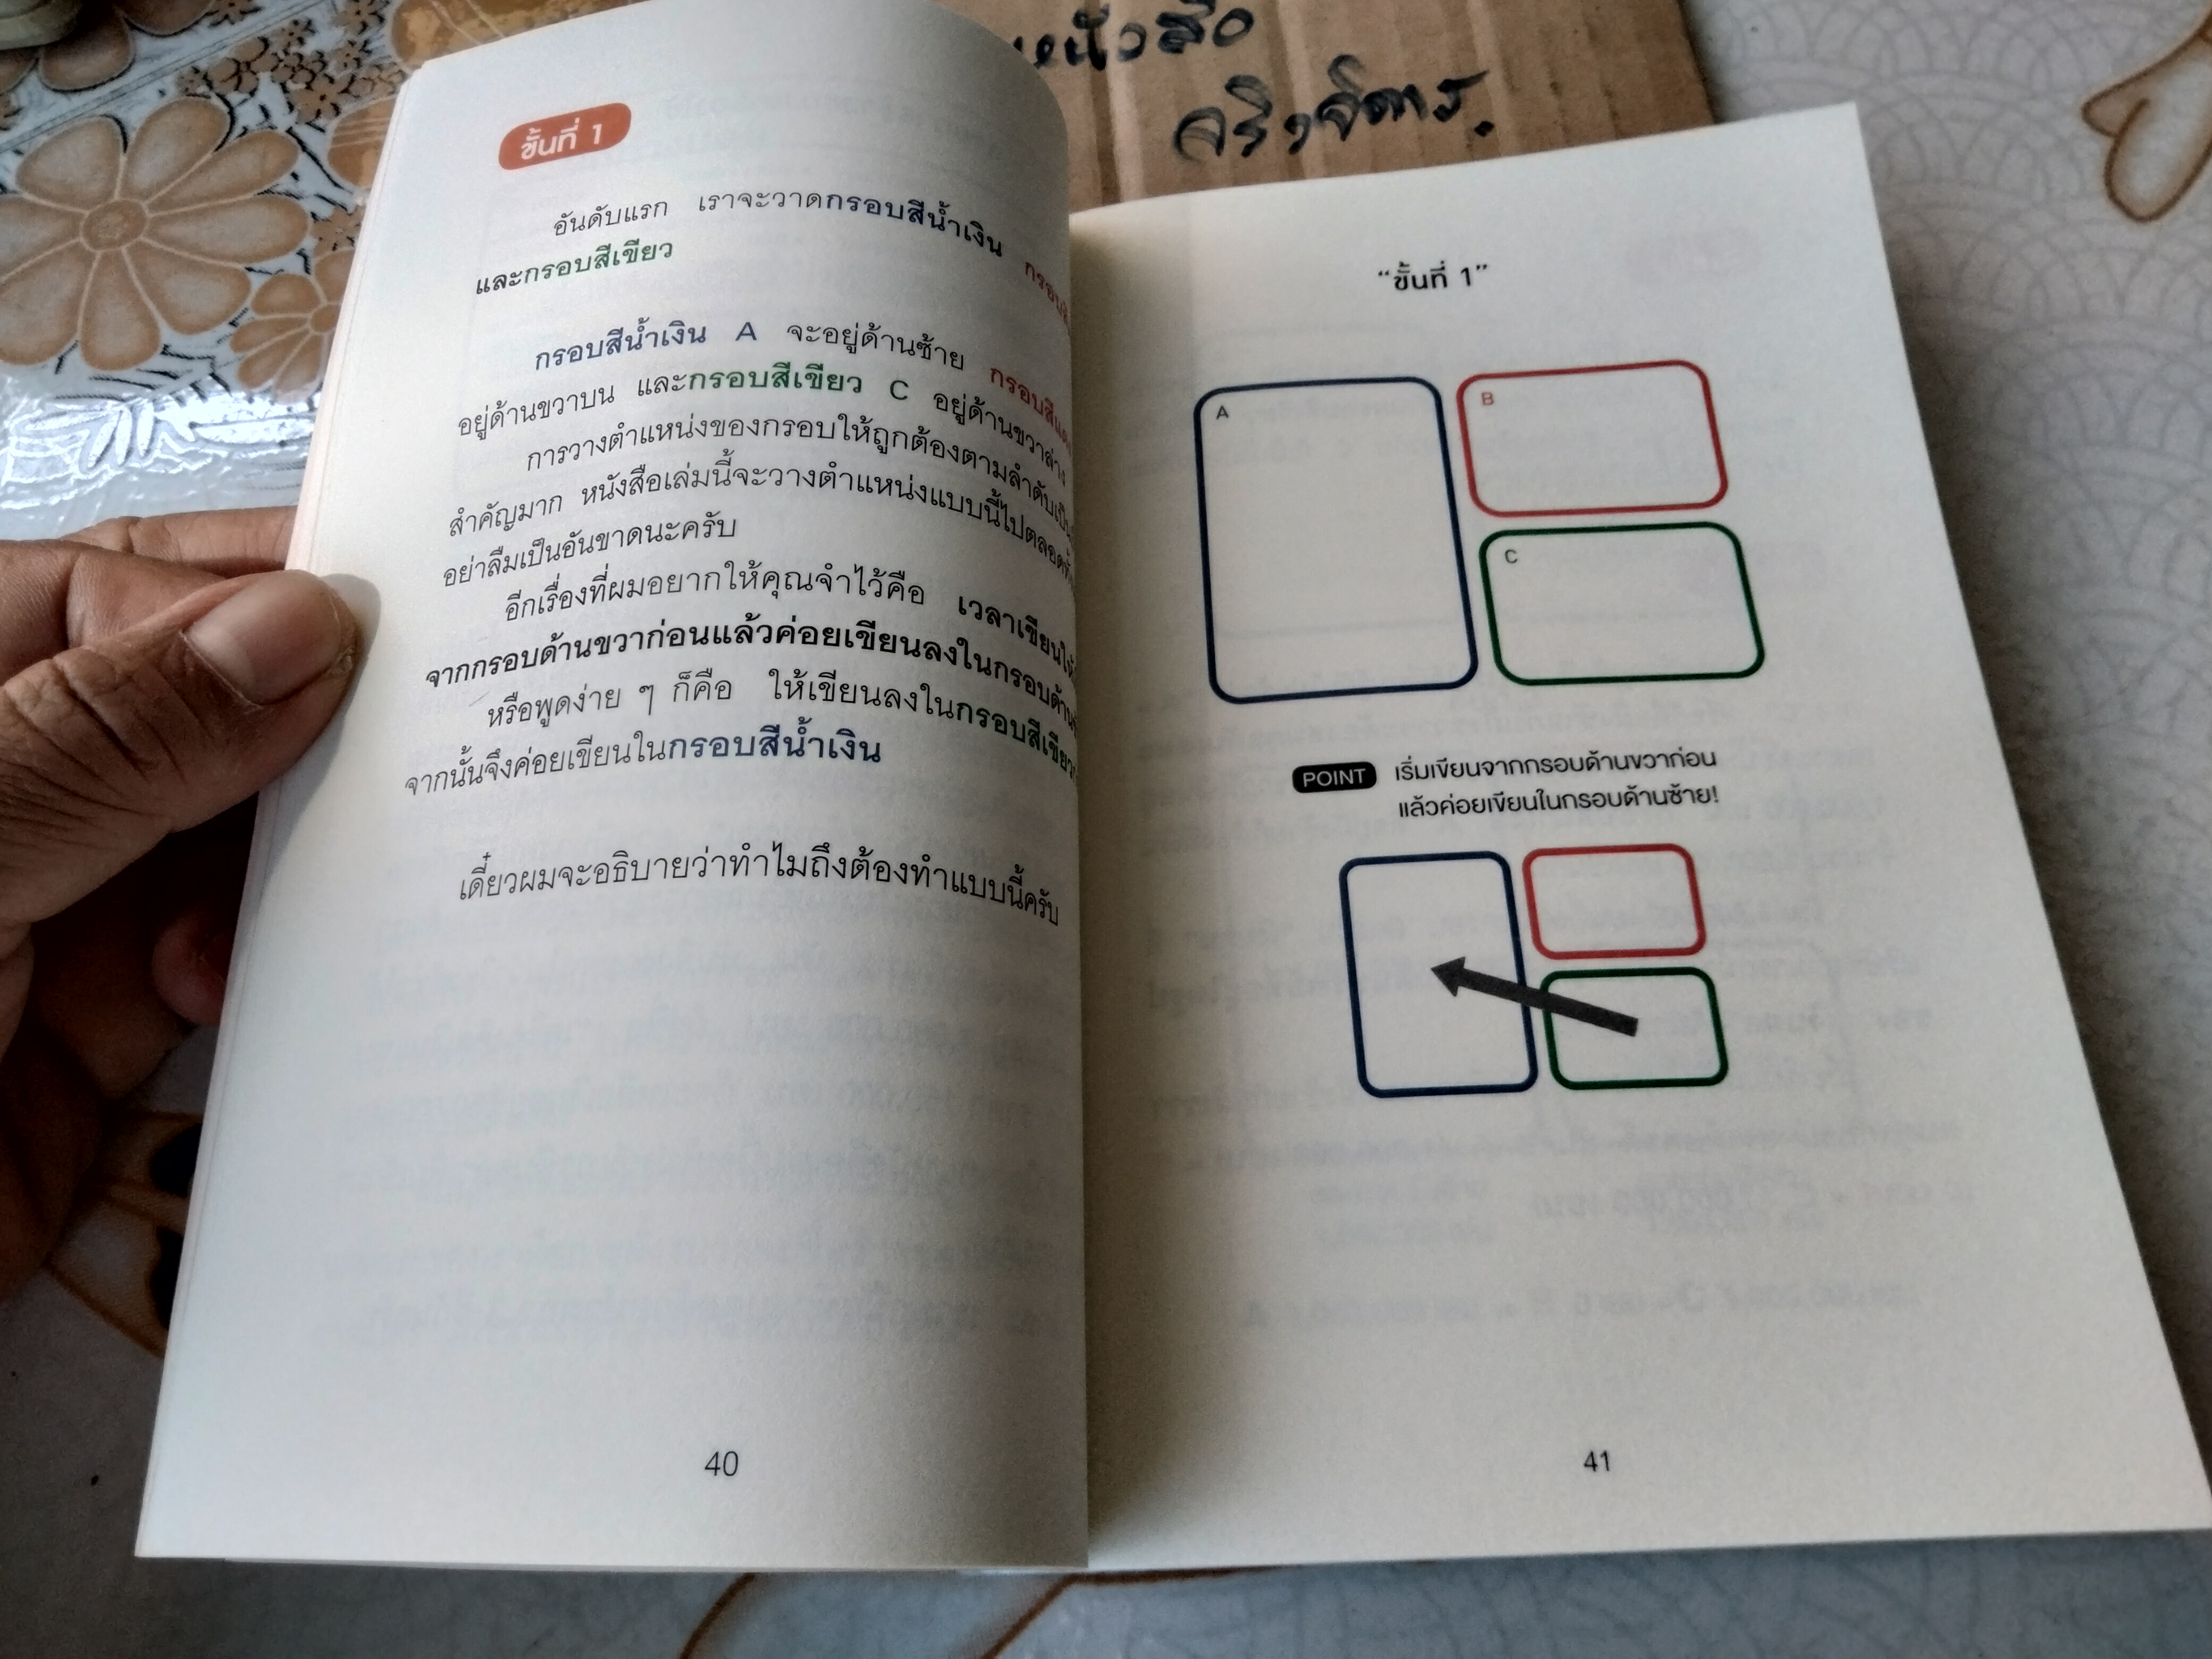 หนังสือ
ขั้นที่ 1
อันดับแรก เราจะวาดกรอบสีน้ำเงิน
และกรอบสีเขียว
กรอบสีน้ำเงิน A จะอยู่ด้านซ้าย กรอบสีแดง
อยู่ด้านขวาบน และกรอบสีเขียว C อยู่ด้านขวาล่าง
การวางตำแหน่งของกรอบให้ถูกต้องตามลำดับเป็น
สำคัญมาก หนังสือเล่มนี้จะวางตำแหน่งแบบนี้ไปตลอด
อย่าลืมเป็นอันขาดนะครับ
อีกเรื่องที่ผมอยากให้คุณจำไว้คือ เวลาเขียนให้
จากกรอบด้านขวาก่อนแล้วค่อยเขียนลงในกรอบด้าน
หรือพูดง่าย ๆ ก็คือ ให้เขียนลงในกรอบสีเขียว
จากนั้นจึงค่อยเขียนในกรอบสีน้ำเงิน
เดี๋ยวผมจะอธิบายว่าทำไมถึงต้องทำแบบนี้ครับ
40
“ขั้นที่ 1”
A
B
C
POINT เริ่มเขียนจากกรอบด้านขวาก่อน
แล้วค่อยเขียนในกรอบด้านซ้าย!
41